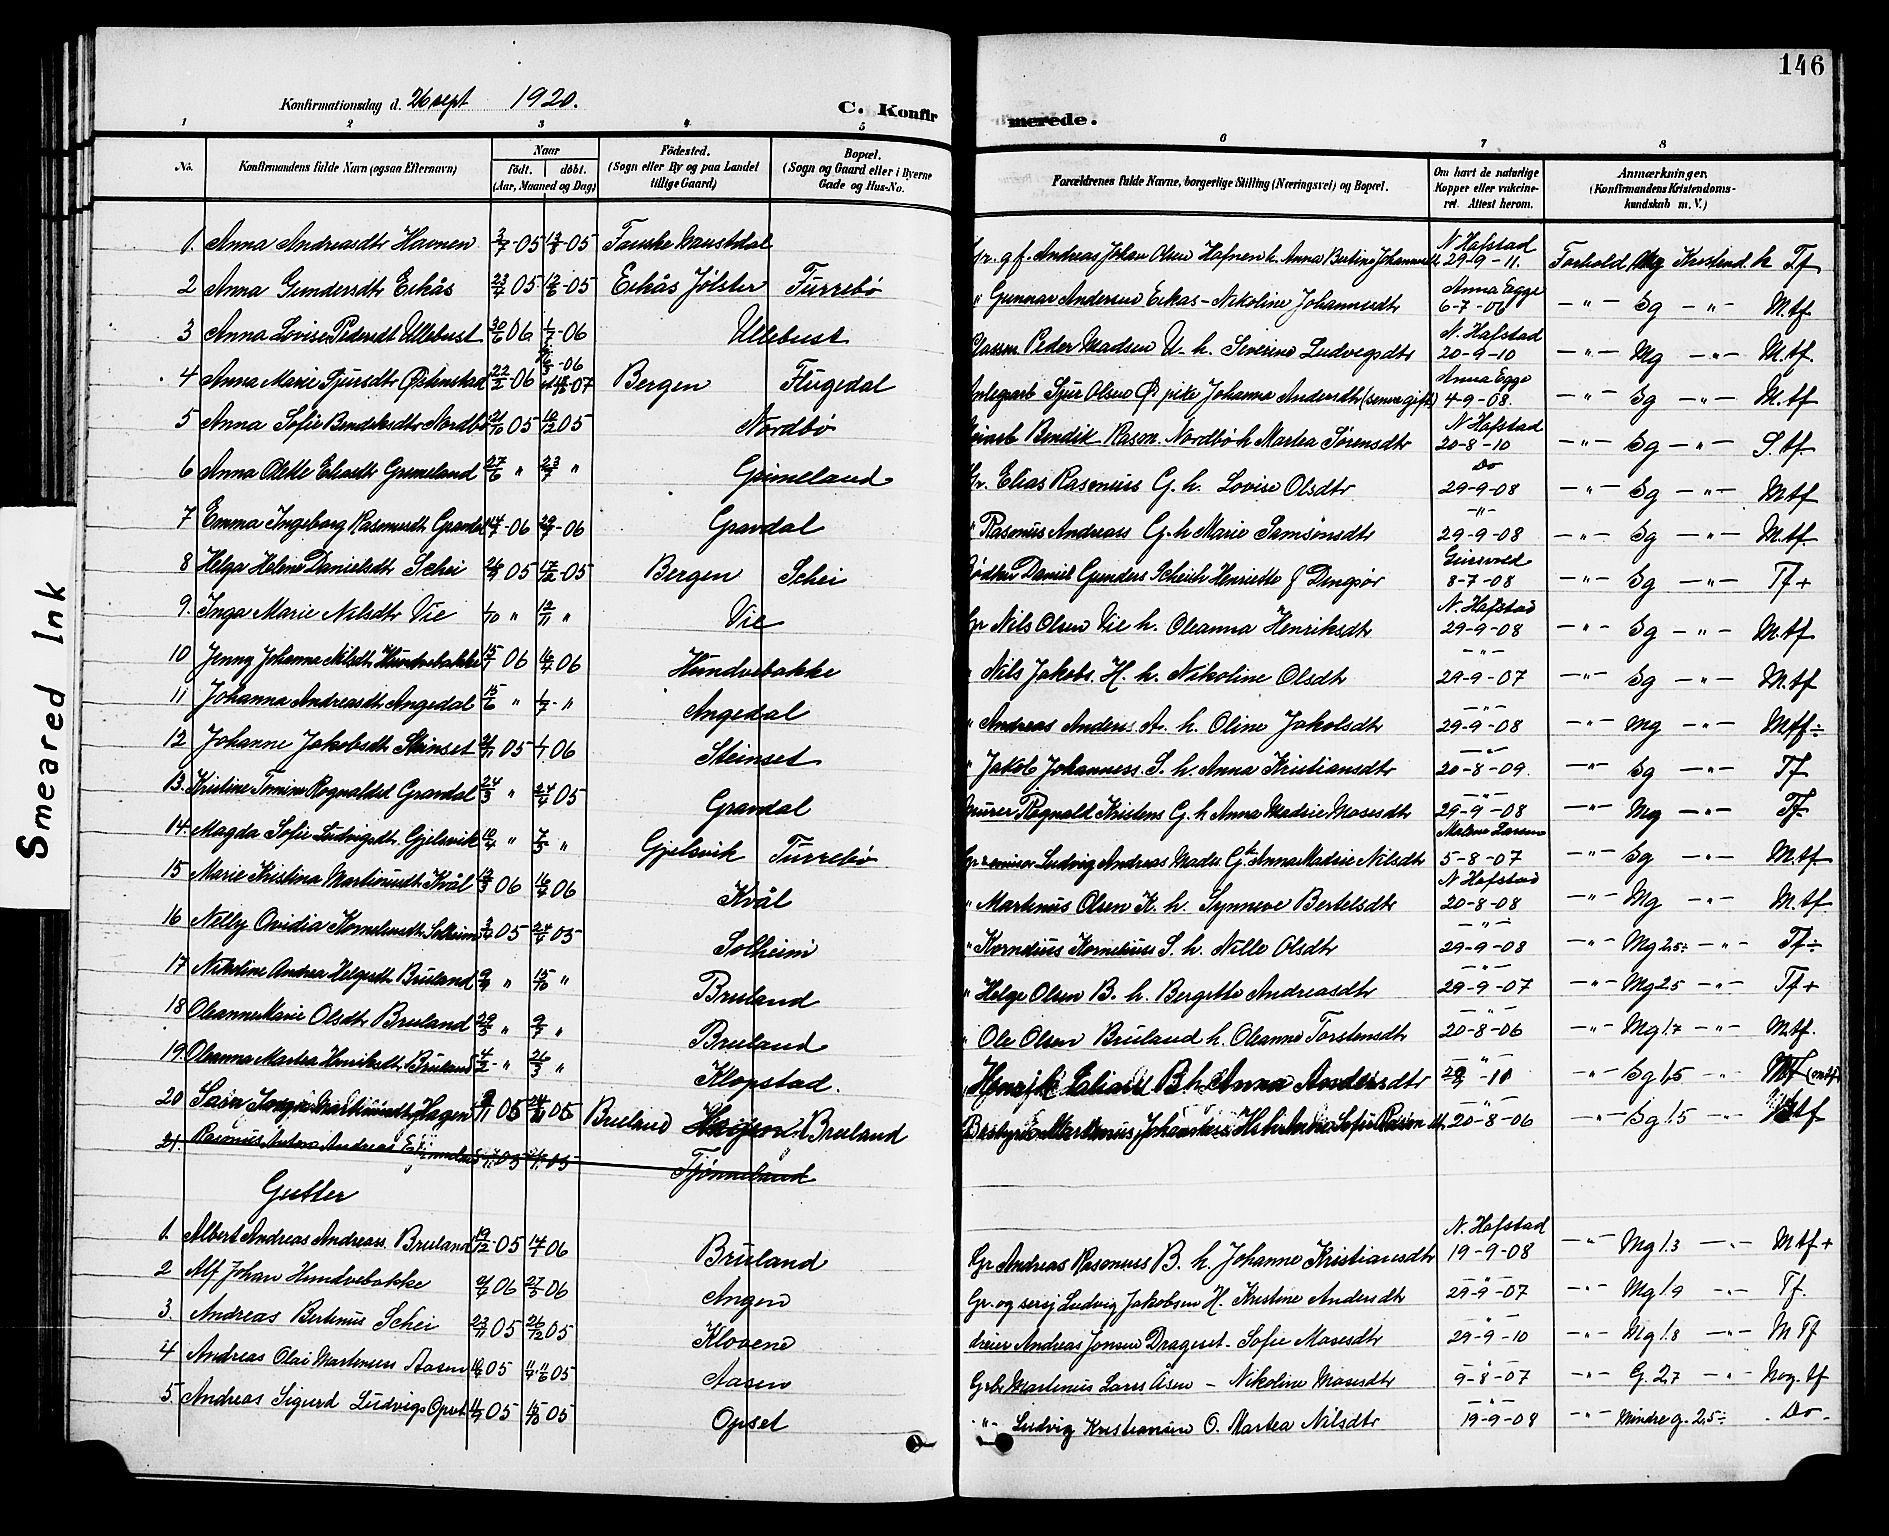 146
Konfirmationsdag d. 26 sept 1920.
C. Konfirmerede.
1 2 3 4 5 6 7 8
No.
Konfirmandens fulde Navn (ogsaa Efternavn)
Naar
født. døbt.
(Aar, Maaned og Dag)
Födested.
(Sogn eller By og paa Landet
tillige Gaard)
Bopæl.
(Sogn og Gaard eller i Byerne
Gade og Hus-No.
Forældrenes fulde Navne, borgerlige Stilling (Næringsvei) og Bopæl.
Om havt de naturlige
Kopper eller vakcine-
ret. Attest herom.
Anmærkninger.
(Konfirmandens Kristendoms-
kundskab m. V.)
Smeared Ink
1. Anna Andreasdtr Havnen 3/7-05 13/8-05 Fauske Naustdal Gr. g f. Andreas Johan Olsen Hafnen h. Anna Bertine Johannesdtr N Hafstad 29-9-11. Forhold Mg Kristend. k Tf
2 Anna Gundersdtr Eikås 23/4 05 12/6-05 Eikås Jølster Furrebø " Gunnar Andersen Eikas - Nikoline Johannesdtr Anna Egge 6-7-06 -"- Sg -"- M.tf
3 Anna Lovise Pedersdt Ullebust 30/6 06 1/7-06 Ullebust Peder Madsen U- h. Severine Ludvigsdtr N. Hafstad 20-9-10 -"- Mg -"- M.tf.
4 Anna Marie Sjursdtr Østenstad 22/2 06 Bergen Flugedal Anlegarb Sjur Olsen Ø pike Johanna Andersdtr (senere gift) Anna Egge 4-9-08. -"- Sg -"- M.tf
5 Anna Sofie Bendiksdtr Nordbø 21/10 05 10/12 05 Nordbø Bendik Rasm. Nordbø h Martea Sørensdtr N Hafstad 20-8-10 -"- Sg -"- S.tf
6 Anna Olette Eliasdt Grimeland 27/6 " 23/7 " Grimeland Gr. Elias Rasmuss G. h. Lovise Olsdtr Do 29-9-08 -"- Sg -"- M.tf
7 Emma Ingeborg Rasmusdt Gravdal 14/7-06 29/7-06 Gravdal " Rasmus Andreass G. h Marie Samsonsdtr -"- 29-9-08 -"- Sg -"- M.tf.
8 Helga Helene Danielsdt Schei 26/9 05 17/12-05 Bergen Schei Bødker Daniel Gunders Schei h Henriette f Dingsør 8-7-08 -"- Sg -"- Tf +
9. Inga Marie Nilsdtr Vie 1/10 " 12/11 " Vie Gr Nils Olsen Vie h. Oleanna Henriksdtr N. Hafstad 29-9-08 -"- Sg -"- M.tf
10 Jenny Johanna Nilsdt. Hundvebakke 15/3 06 16/4 06 Hundvebakke " Nils Jakobs. H. h. Nikoline Olsdtr -"- 29-9-07 -"- Sg -"- M.tf
11 Johanna Andreasdt Angedal 15/6 " 1/7-" Angedal " Andreas Anders A. h. Oline Jakobsdtr -"- 29-9-08 -"- Mg -"- Mtf÷
12 Johanne Jakobsdt Steinset 26/11 05 1/1 06 Steinset " Jakob Johanness. S. h. Anna Kristiansdtr -"- 20-8-09. -"- Sg -"- Tf
13. Kristine Tomine Rognaldsd Gravdal 24/3 " 24/4 05 Gravdal Murer Rognald Kristens G. h Anna Madrie Mosesdtr -"- 29-9-08 -"- Mg -"- Tf-
14. Magda Sofie Ludvigsdt. Gjelsvik 10/4 " 7/5 " Gjelsvik Furrebø Ludvig Andreas Mads. G h. Anna Madrie Nilsdtr Malene Larsen 5-8-07 -"- Sg -"- M.tf
15 Marie Kristina Martinusdt Kvål 12/3 06 16/4 06 Kvål " Martinus Olsen K. h. Synneve Bertelsdtr N Hafstad 20-8-08 -"- Mg -"- M.tf.
16 Nelly Ovidia Korneliusdt Solheim 2/4 05 24/4 05 Solheim " Kornelius Korneliuss S. h. Nille Olsdtr -"- 29-9-08 -"- Mg 2.5÷ -"- Tf÷
17 Nikoline Andrea Helgesdt Bruland 9/9 " 15/10 " Bruland " Helge Olsen B. h. Bergitte Andreasdtr -"- 29-9-07 -"- Mg 2.5 -"- Tf+
18 Oleanna Marie Olsdtr Bruland 29/3 " 9/7 " Bruland " Ole Olsen Bruland h. Oleanne Torstensdtr -"- 20-8-06 -"- Mg 1.7 -"- M.tf.
19. Oleanna Martea Henriksdt. Bruland 4/2-" 26/3 " Klopstad. Henrik Eliass B. h. Anna Andersdtr -10 -"- Sg 1,5 -"- Mtf
20 Hagen 05 05 Bruland Bruland Martinus Johannes H. h. Anna Sofie Rasm dt. 20-8-06 -"- Sg 1.5 -"- tf
21. Rasmus Anton Andreas 05 05 Tjønneland
Gutter
1. Albert Andreas Andreass. Bruland 19/12-05 14/1 06 Bruland Gr Andreas Rasmuss B. h. Johanne Kristiansdtr N. Hafstad 19-9-08 -"- Mg 1.3 -"- M.tf+
2 Alf Johan Hundvebakke 2/4 06 27/5 06 Angen Gr. og sersj Ludvig Jakobsen H. Kristine Andersdtr -"- 29-9-07 -"- Mg 1.9 -"- Tf.
3. Andreas Bertinus Schei 23/11 05 26/12 05 Klovene dreier Andreas Jonsen Drageset - Sofie Mosesdtr -"- 29-9-10 -"- Mg 1.8 -"- M Tf
4 Andreas Olai Martinuss Aasen 05 11/6 05 Aasen Gbr Martinus Larss Åsen - Nikoline Mosesdtr -"- 9-8-07 -"- G. 2,7 -"- Nog.tf
5 Andreas Sigurd Ludvigs Opset 05 15/10 05 Opset -"- Ludvig Kristiansen O. Martea Nilsdtr -"- 19-9-08 -"- Mindre g. 2,5÷ -Do-